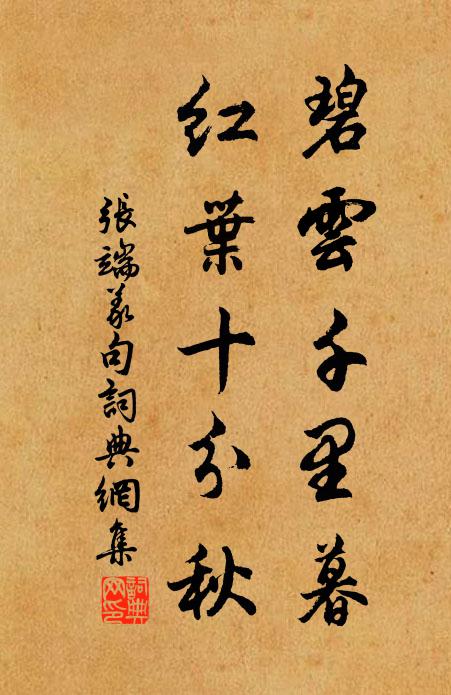 碧雲千里暮
紅葉十分秋
張端義句詞典網集
詞典網印